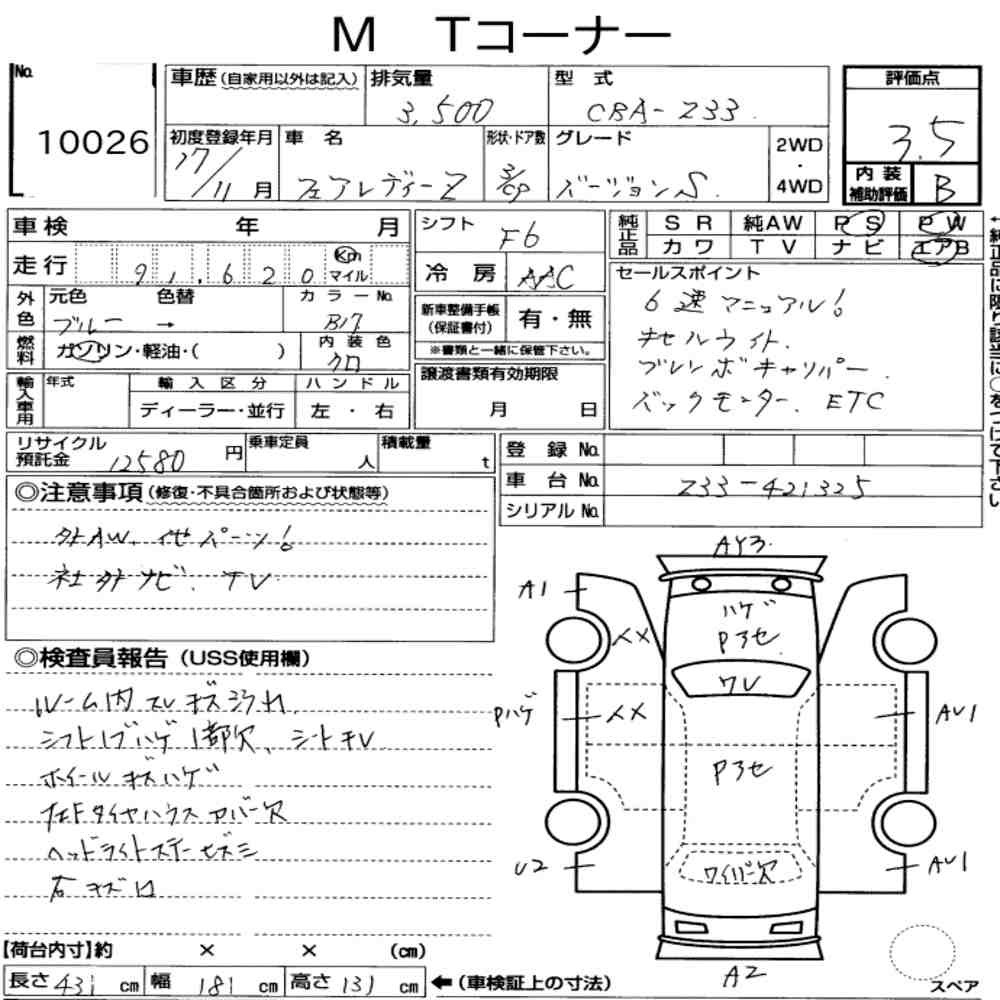 M Tコーナー
No. 10026
車歴(自家用以外は記入)
排気量 3,500
型式 CBA-Z33
評価点 3.5
内装補助評価 B
初度登録年月 17/11月
車名 フェアレディーZ
形状・ドア数 3/CP
グレード バージョンS
2WD・4WD
車検 年 月
走行 91,620 Km マイル
シフト F6
冷房 AAC
純正品 SR 純AW PS PW
カワ TV ナビ エアB
外色 元色 ブルー 色替 →
カラーNo. B17
燃料 ガソリン・軽油・( )
内装色 クロ
新車整備手帳(保証書付) 有・無
※書類と一緒に保管下さい。
輸入車用 年式 輸入区分 ハンドル
ディーラー・並行 左・右
譲渡書類有効期限
月 日
セールスポイント
6速マニュアル!
キセルライト.
ブレンボキャリパー.
バックモニター. ETC
リサイクル預託金 12580円
乗車定員 人
積載量 t
登録No.
車台No. Z33-421325
シリアルNo.
◎注意事項(修復・不具合箇所および状態等)
外AW. 他パーツ!
社外ナビ. TV
◎検査員報告(USS使用欄)
ルーム内スレキズヨゴレ
シフトノブハゲ1部欠、シートキレ
ホイールキズハゲ
左F タイヤハウスカバー欠
ヘッドライトステー
AY3
A1
ハゲ
P3セ
XX
ワレ
Pハゲ
XX
AU1
P3セ
U2
AU1
ワイパー欠
A2
【荷台内寸】約 × × (cm)
長さ 431 cm 幅 181 cm 高さ 131 cm ←(車検証上の寸法)
スペア
←純正品に限り該当に○をつけて下さい